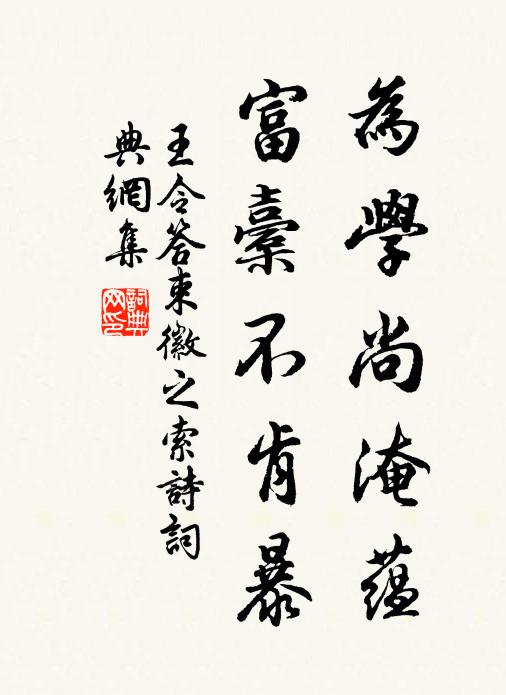 為學尚淹蘊
富稾不肯暴
王令答束徽之索詩詞
典網集
詞典
网印